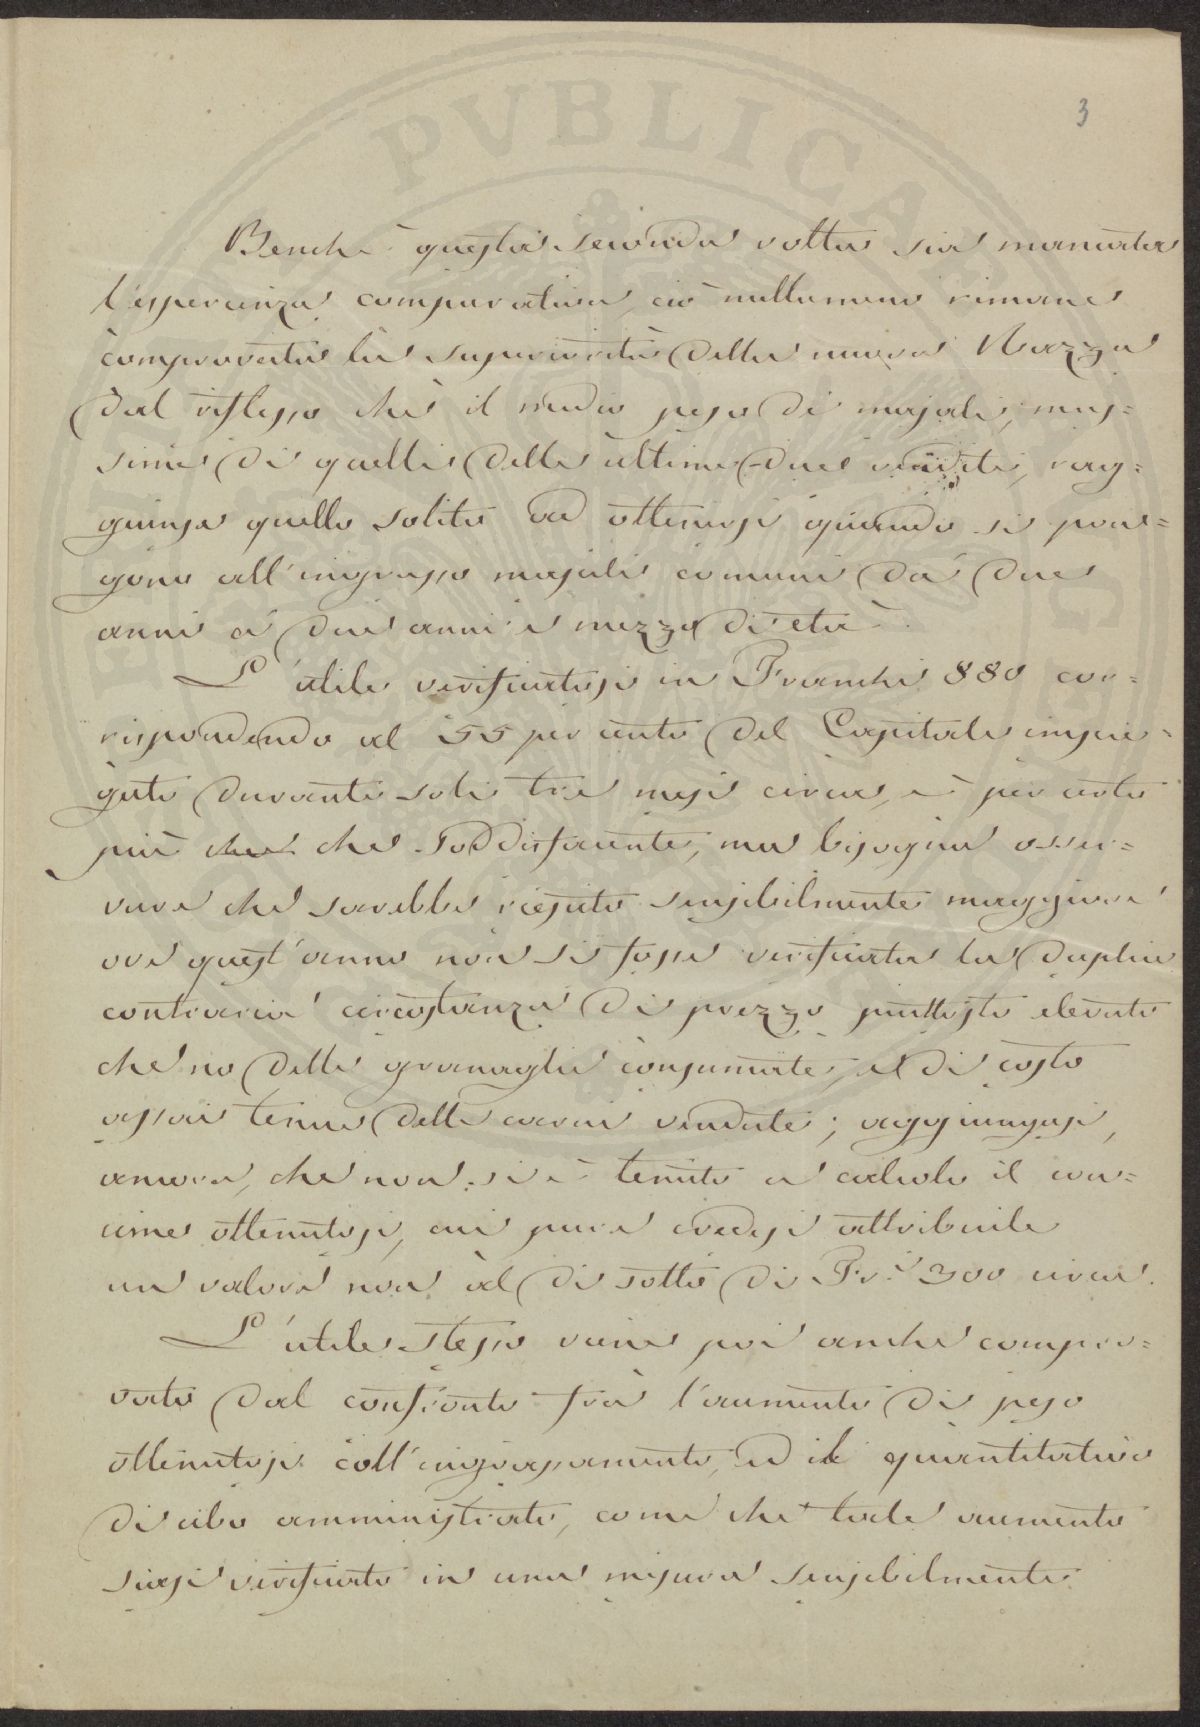 PVBLICA
3
Benchè questa seconda volta sia mancata
l'esperienza comparativa, ciò nullameno rimane
comprovata la superiorità della nuova Razza
dal riflesso che il medio peso di majali, mas=
sime di quelli delle ultime due vendite, rag=
giunse quello solito ad ottenersi quando si pon=
gono all'ingrasso majali comuni da due
anni a due anni e mezzo di età.
L'utile verificatosi in Franchi 880 cor=
rispondendo al 55 per cento del Capitale impie=
gato durante soli tre mesi circa, è per certo
più che che soddisfacente, ma bisogna osser=
vare che sarebbe riescito sensibilmente maggiore
ove quest'anno non si fosse verificata la duplice
contraria circostanza di prezzo piuttosto elevato
che no delle granaglie consumate, e di costo
assai tenue delle carni vendute; aggiungasi,
ancora, che non si è tenuto a calcolo il con=
cime ottenutosi, cui pure credesi attribuile
un valore non al di sotto di Fr.i 300 circa.
L'utile stesso viene poi anche compro=
vato dal confronto fra l'aumento di peso
ottenutosi coll'ingrassamento, ed il quantitativo
di cibo amministrato, come che tale aumento
siasi verificato in una misura sensibilmente